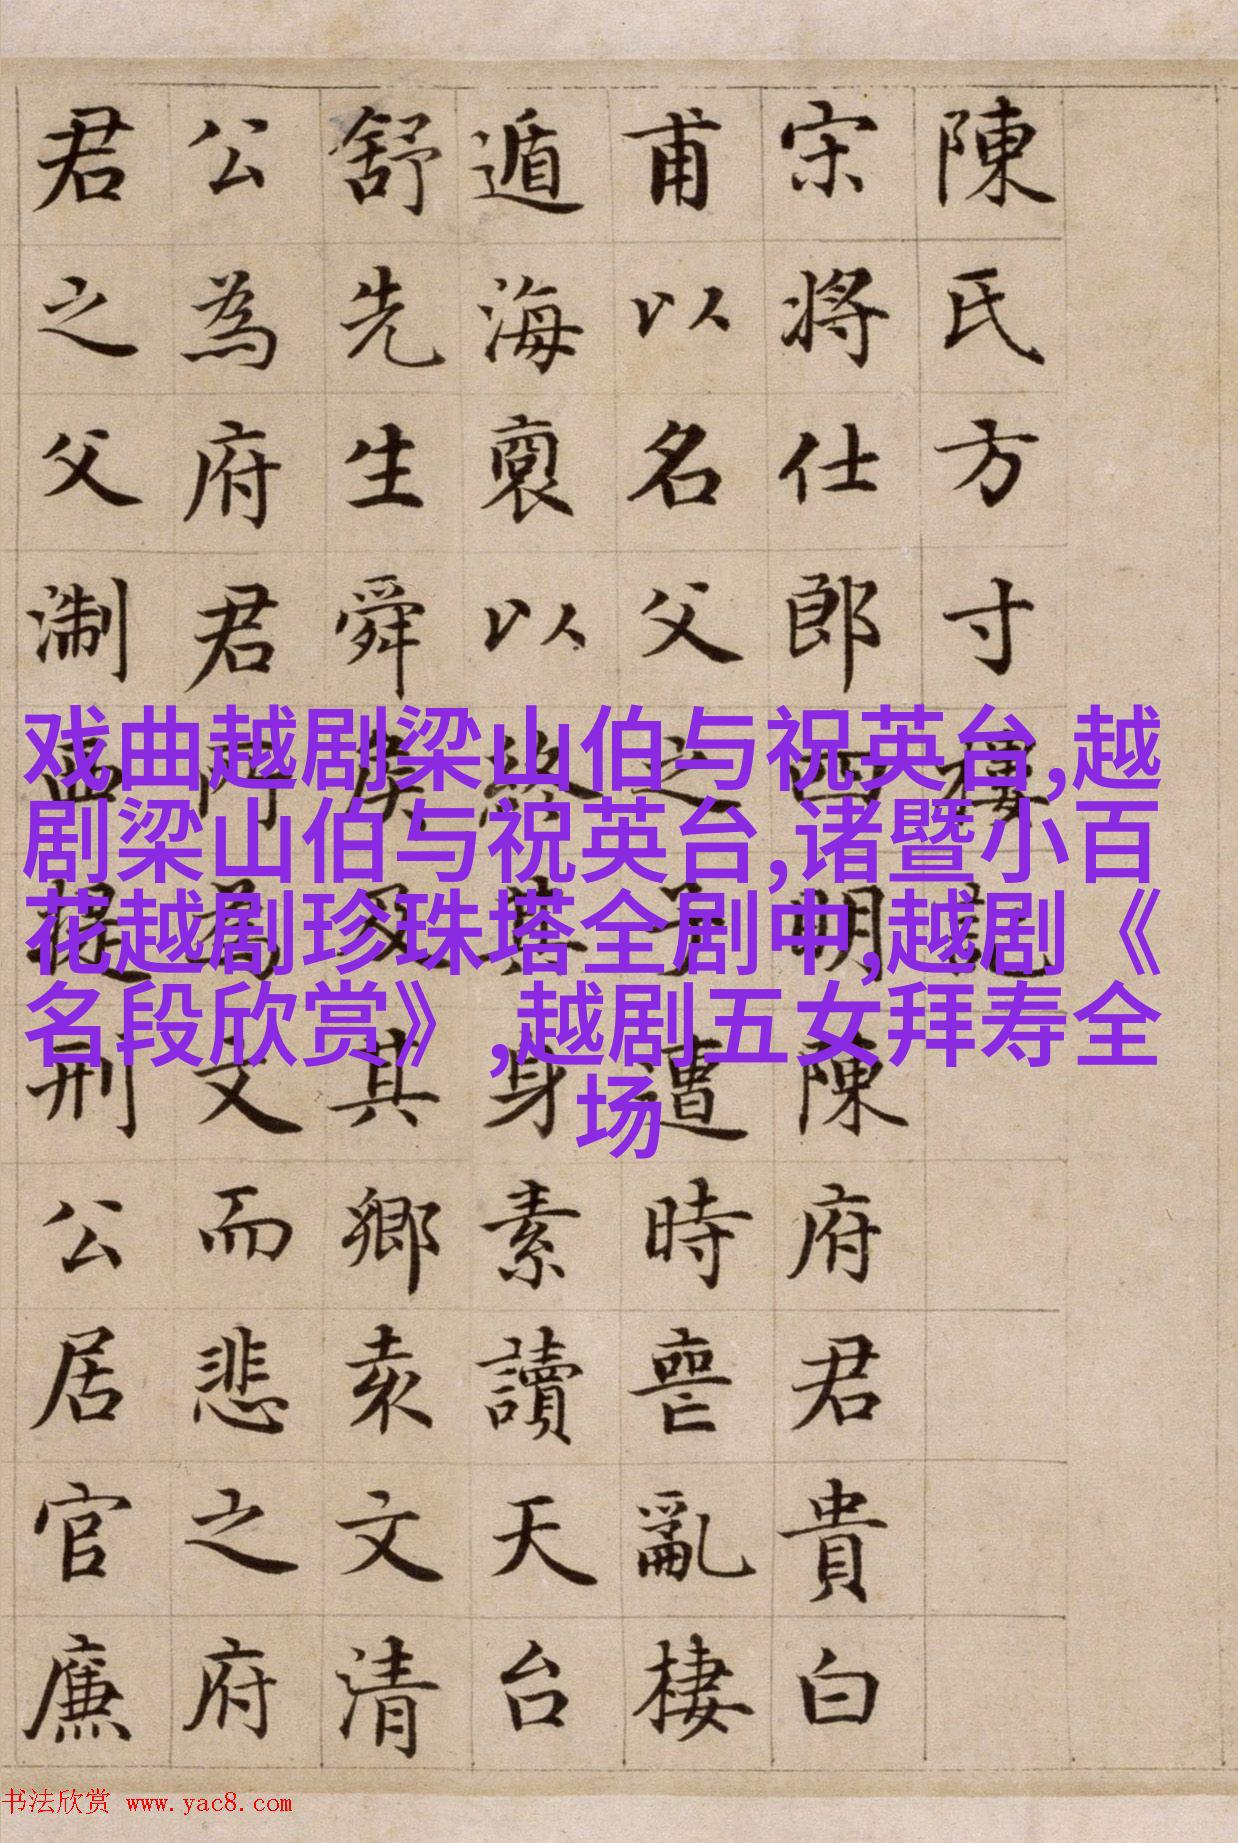 陳氏方寸樓記
宋將仕郎四明陳府君貴白
甫以名父之子遭時喪亂棲
遁海裔以終其身素讀天台
舒先生舜侯及其鄉袁文清
公為府君所為文而悲之府
君之父淛西提刑公居官廉
戏曲越剧梁山伯与祝英台,越
剧梁山伯与祝英台,诸暨小百
花越剧珍珠塔全剧中,越剧《
名段欣赏》,越剧五女拜寿全
场
书法欣赏 www.yac8.com